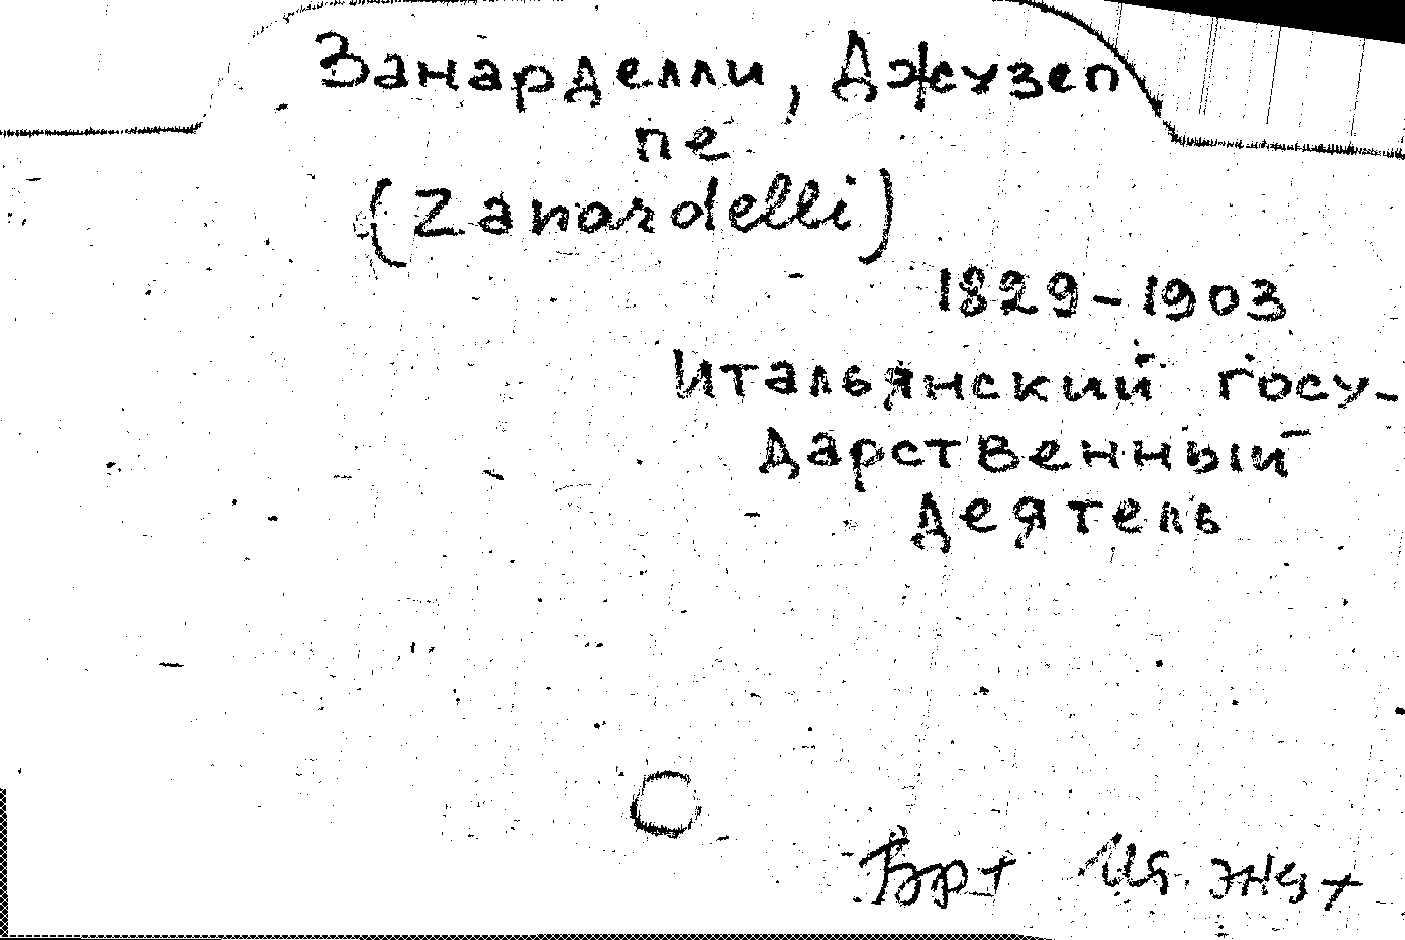 Занарделли, Джузеп
пе
(Zanardelli)
1829-1903
Итальянский госу-
дарственный
деятель
Бр+